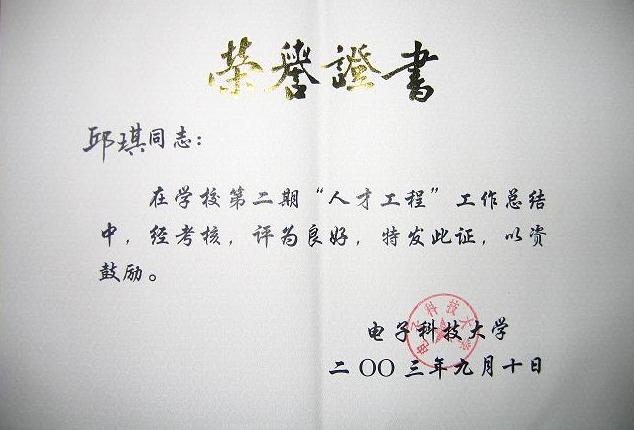 荣誉證書
邱琪同志：
在学校第二期“人才工程”工作总结
中，经考核，评为良好，特发此证，以资
鼓励。
电子科技大学
二〇〇三年九月十日
电子科技大学